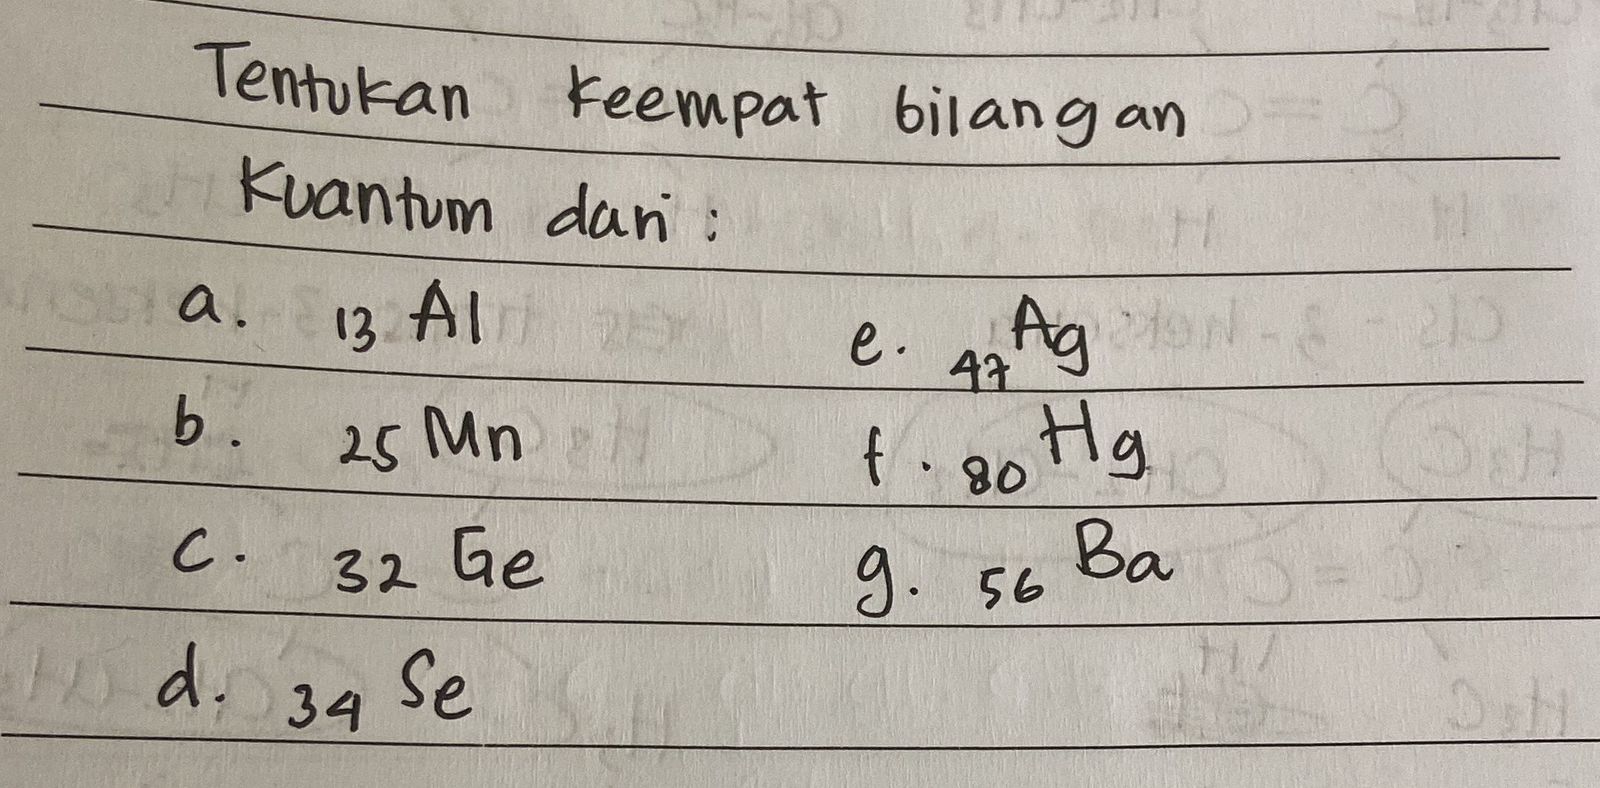 Tentukan keempat bilangan
Kuantum dari :
a. 13 Al
b. 25 Mn
c. 32 Ge
d. 34 Se
e. 47 Ag
f. 80 Hg
g. 56 Ba